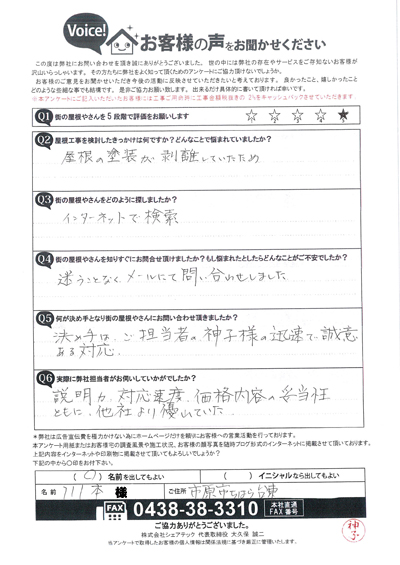 Voice!
お客様の声をお聞かせください
この度は弊社にお問い合わせを頂き誠にありがとうございました。世の中には弊社の存在やサービスをご存知ないお客様が
沢山いらっしゃいます。その方たちに弊社をよく知って頂くためのアンケートにご協力頂けないでしょうか。
お客様のご意見をお聞かせいただき今後の活動に反映させていただきたいと考えております。良かったこと、嬉しかったこと
どのような些細な事でも結構です。是非ご協力お願い致します。出来るだけ具体的に書いて頂ければ幸いです。
※本アンケートにご記入いただいたお客様には工事ご用命時に工事金額税抜きの2%をキャッシュバックさせていただきます
Q1 街の屋根やさんを5段階で評価をお願いします ☆ ☆ ☆ ☆ ★
Q2 屋根工事を検討したきっかけは何ですか?どんなことで悩まれていましたか?
屋根の塗装が剥離していたため
Q3 街の屋根やさんをどのように探しましたか?
インターネットで検索
Q4 街の屋根やさんを知りすぐにお問合せ頂けましたか?もし悩まれたとしたらどんなことがご不安でしたか?
迷うことなくメールにて問い合わせしました
Q5 何が決め手となり街の屋根やさんにお問い合わせ頂きましたか?
決め手は、ご担当者の神子様の迅速で誠意
ある対応、
Q6 実際に弊社担当者がお伺いしていかがでしたか?
説明力、対応速度、価格内容の妥当性
ともに、他社より優れていた。
*弊社は広告宣伝費を極力かけない為にホームページだけを頼りにお客様への営業活動を行っております。
本アンケート用紙またはお客様宅の調査風景や施工状況、お客様の顔写真を随時ブログ形式のインターネットに掲載させて頂いております。
上記内容をインターネットや印刷物に掲載させて頂いてもよろしいでしょうか?
下記の中から〇印をお付下さい。
(〇)名前を出してもよい ( )イニシャルなら出してもよい
名前 様 ご住所 市原市ちはら台東
FAX 0438-38-3310 本社直通 FAX番号
ご協力ありがとうございました。
株式会社シェアテック 代表取締役 大久保 誠二
※アンケートで取得したお客様の個人情報は関係法規に基づき厳正に管理いたします。
神子